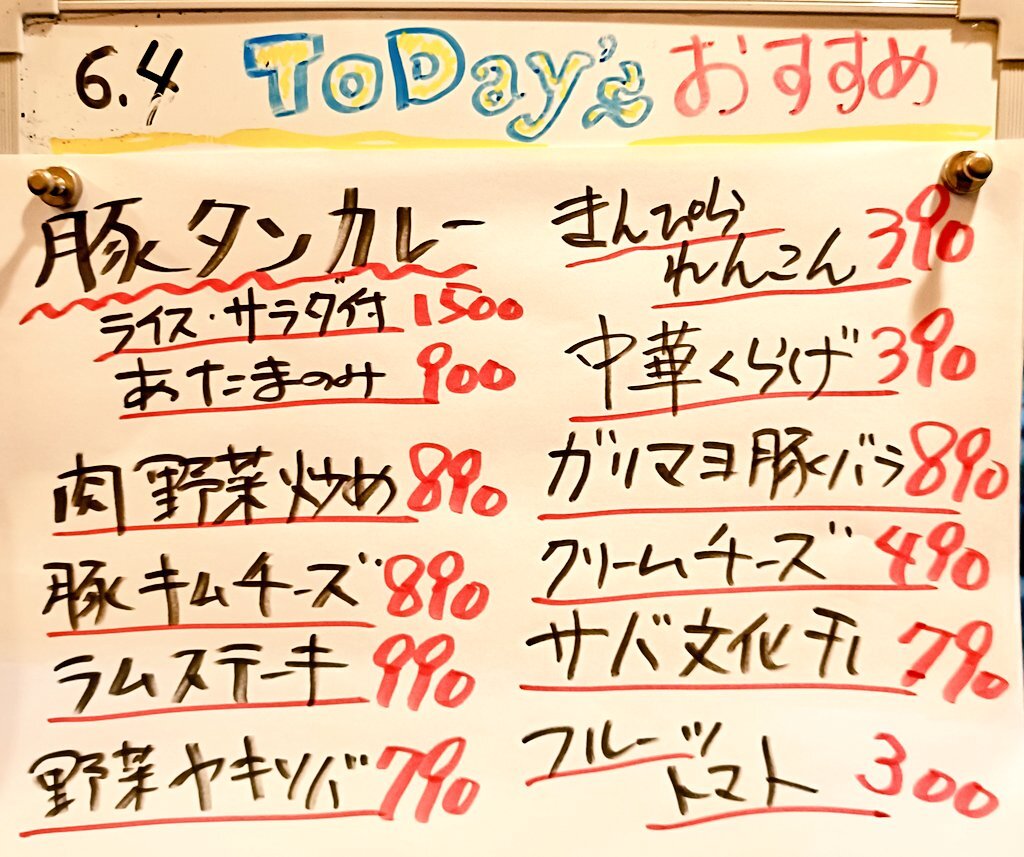 6.4 ToDay's おすすめ
豚タンカレー
ライス・サラダ付 1500
あたまのみ 900
肉野菜炒め 890
豚キムチーズ 890
ラムステーキ 990
野菜ヤキソバ 790
きんぴら
れんこん 390
中華くらげ 390
ガリマヨ豚バラ 890
クリームチーズ 490
サバ文化干し 790
フルーツ
トマト 300